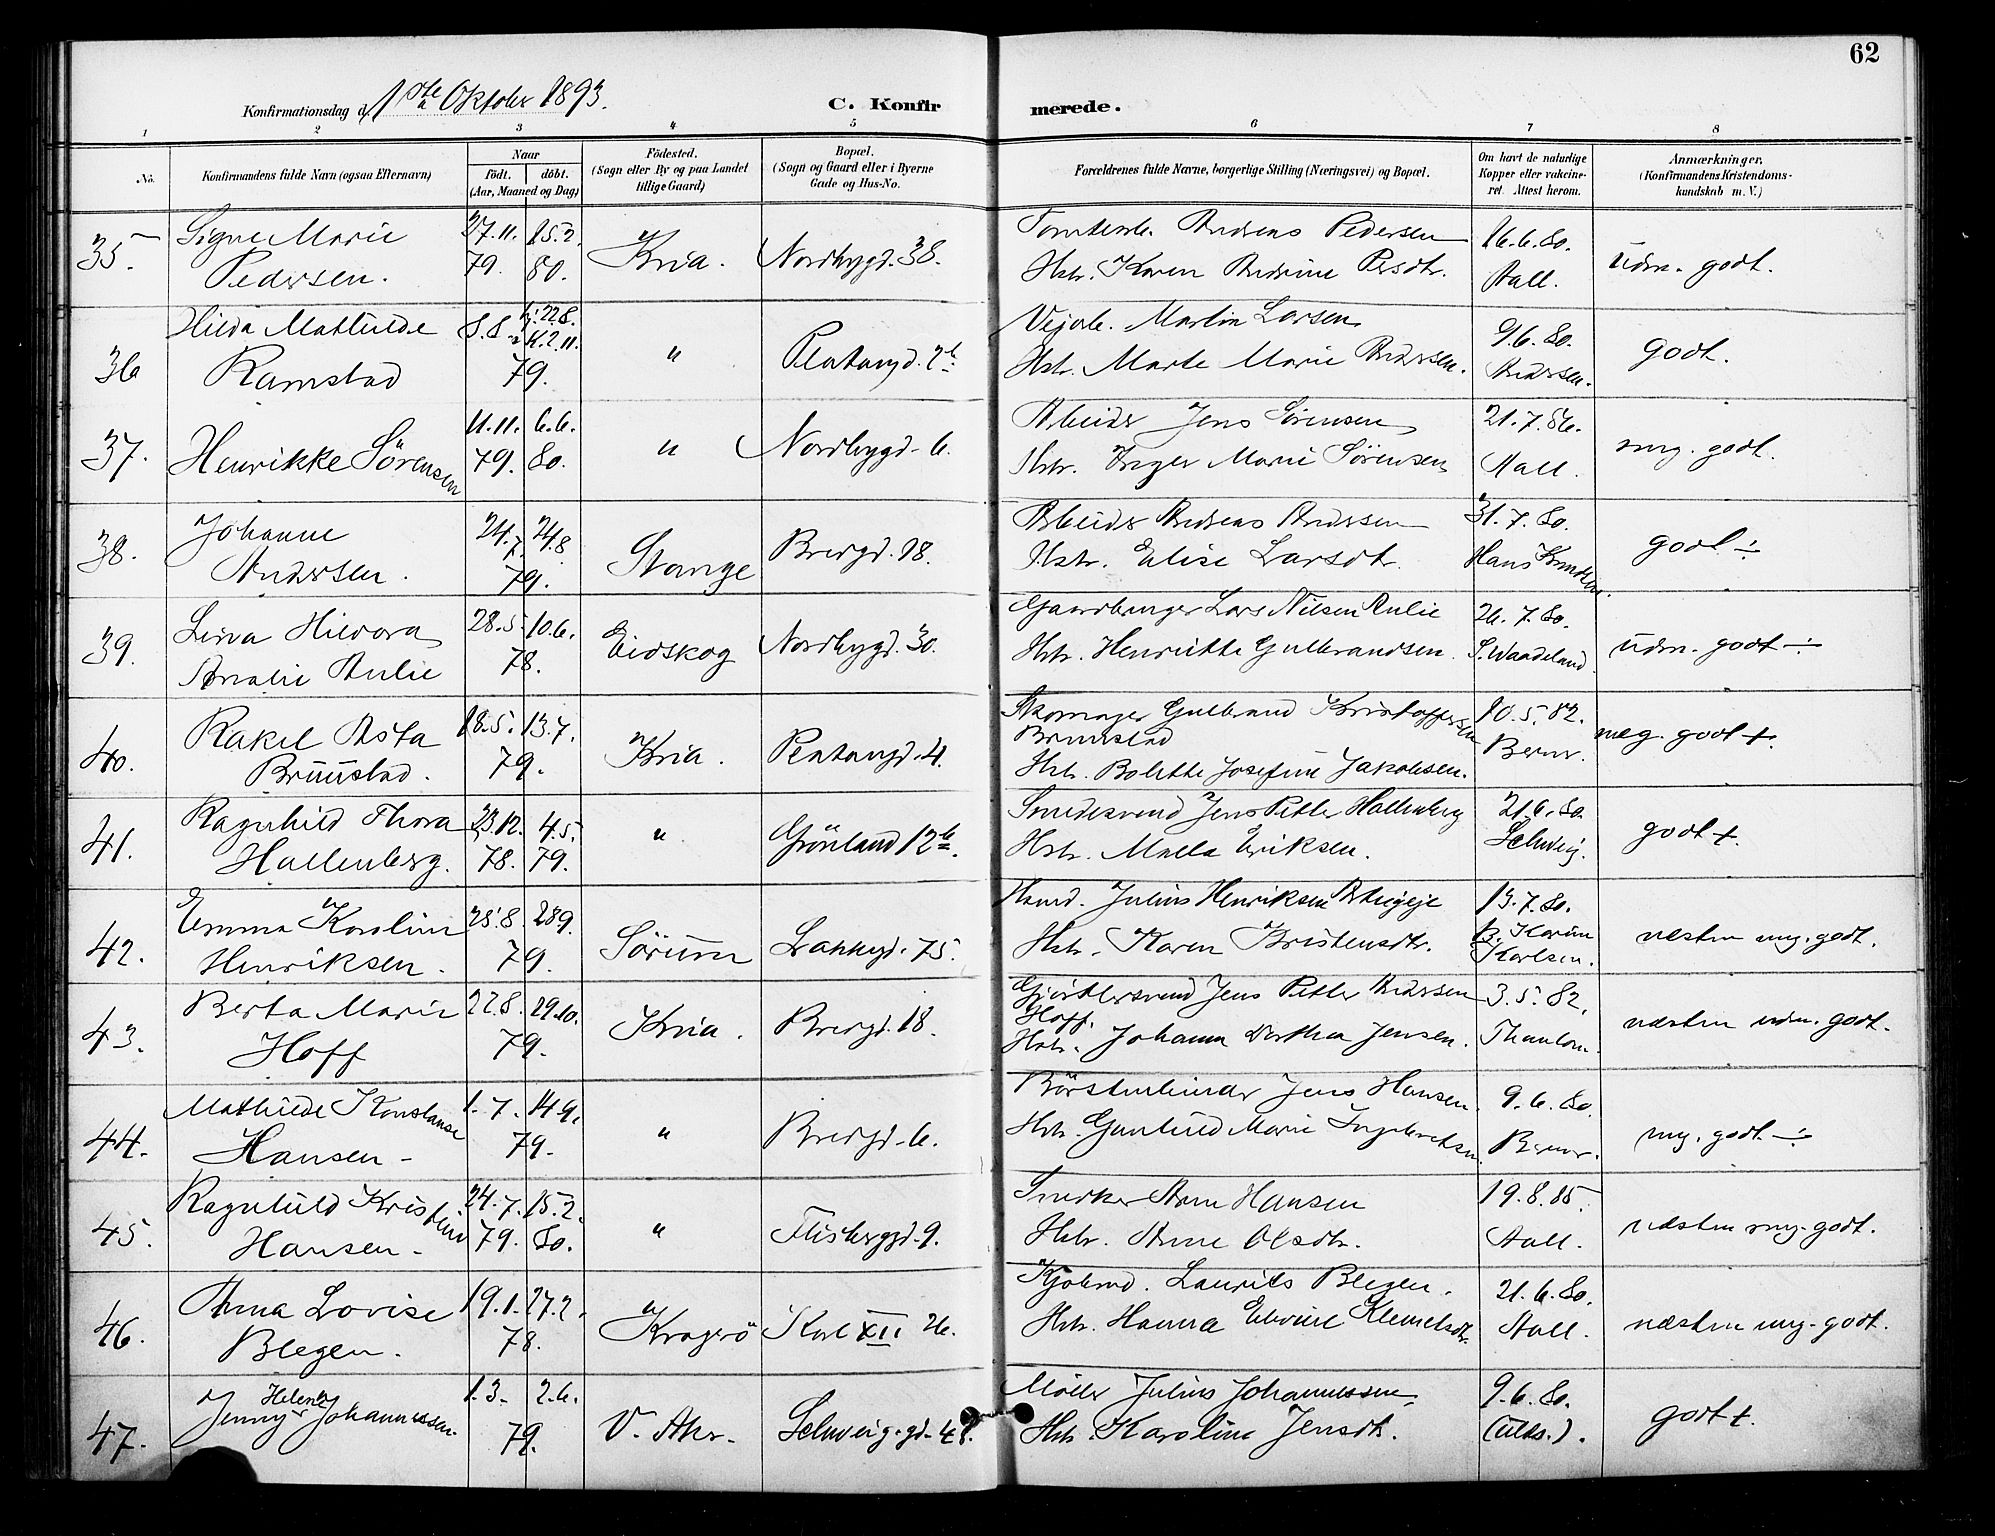 62
Konfirmationsdag d. 1ste Oktober 1893.
C. Konfirmerede.
1 2 3 4 5 6 7 8
No. Konfirmandens fulde Navn (ogsaa Efternavn)
Naar
födt. döbt.
(Aar, Maaned og Dag)
Födested.
(Sogn eller By og paa Landet
tillige Gaard)
Bopæl.
(Sogn og Gaard eller i Byerne
Gade og Hus-No.
Forældrenes fulde Navne, borgerlige Stilling (Næringsvei) og Bopæl.
Om havt de naturlige
Kopper eller vakcine-
ret. Attest herom.
Anmærkninger.
(Konfirmandens Kristendoms-
kundskab m. V.)
35. Signe Marie 27.11. 15.2. Kria. Nordbygd. 38. Andreas Pedersen 16.6.80. udm. godt.
Pedersen. 79. 80. Hstr. Karen Andrine Persdtr. Aall.
36 Hilda Mathilde 8.8. 22.8. " Platousgd. 2b Vejarb. Martin Larsen 9.6.80. godt.
Ramstad 79. K. 2.11. Hstr. Marte Marie Andersen. Andersen.
37. Henrikke Sörensen 11.11. 6.6. " Nordbygd. 6. Arbeider Jens Sörensen 21.7.86. mg. godt.
79. 80. Hstr. Inger Marie Sörensen Aall.
38. Johanne 24.7. 24.8 Stange Bredgd. 18. Arbeider Andreas Andersen 31.7.80. godt ÷
Andersen. 79. Hstr. Elise Larsdtr. Hans
39. Lina Hildora 28.5. 10.6. Eidskog Nordbygd. 30. Gaardbruger Lars Nilsen Aulie 26.7.80. udm. godt ÷
Amalie Aulie 78. Hstr. Henriette Gulbrandsen. S. Waadeland
40. Rakel Asta 18.5. 13.7. Kria. Platousgd. 4. Skomager Gulbrand Kristoffersen 10.5.82. meg. godt +.
Bruustad. 79. Bruustad Berner.
Hstr. Bolette Josefine Jakobsen.
41. Ragnhild Thora 23.12. 4.5. " Grönland 12b. Smedesvend Jens Petter Hallenberg 21.6.80. godt +.
Hallenberg. 78. 79. Hstr. Malla Eriksen. Schweig.
42. Emma Karoline 25.8. 28.9. Sörum Lakkegd. 75. Handl. Julius Henriksen 13.7.80. næsten mg. godt.
Henriksen. 79. Hstr. Karen Kristensdtr. Karlsen.
43. Berta Marie 22.8. 29.10. Kria. Bredgd. 18. Gjörtlersvend Jens Petter Andersen 3.5.82. næsten udm. godt.
Hoff 79. Hoff. Thaulow.
Hstr. Johanna Dorthea Jensen.
44. Mathilde Konstanse 1.7. 14.9. " Bredgd. 6. Börstenbinder Jens Hansen. 9.6.80. mg. godt. ÷
Hansen 79. Hstr. Gunhild Marie Ingebretsen. Berner.
45. Ragnhild Kristine 24.7. 15.2. " Flisberggd. 9. Snedker Arne Hansen 19.8.85. næsten mg. godt.
Hansen 79. 80. Hstr. Anne Olsdtr. Aall.
46. Anna Lovise 19.1. 27.2. Kragerö Karl XII 26. Kjöbmd. Laurits Blegen. 21.6.80. næsten mg. godt.
Blegen. 78. Hstr. Hanna Elevine Klemetsdtr. Aall.
47. Jenny Helene Johannessen. 1.3. 2.6. V. Aker. Schweig.gd. 48. Möller Julius Johannessen, 9.6.80. godt +.
79. Hstr. Karoline Jensdtr. (Utts.).